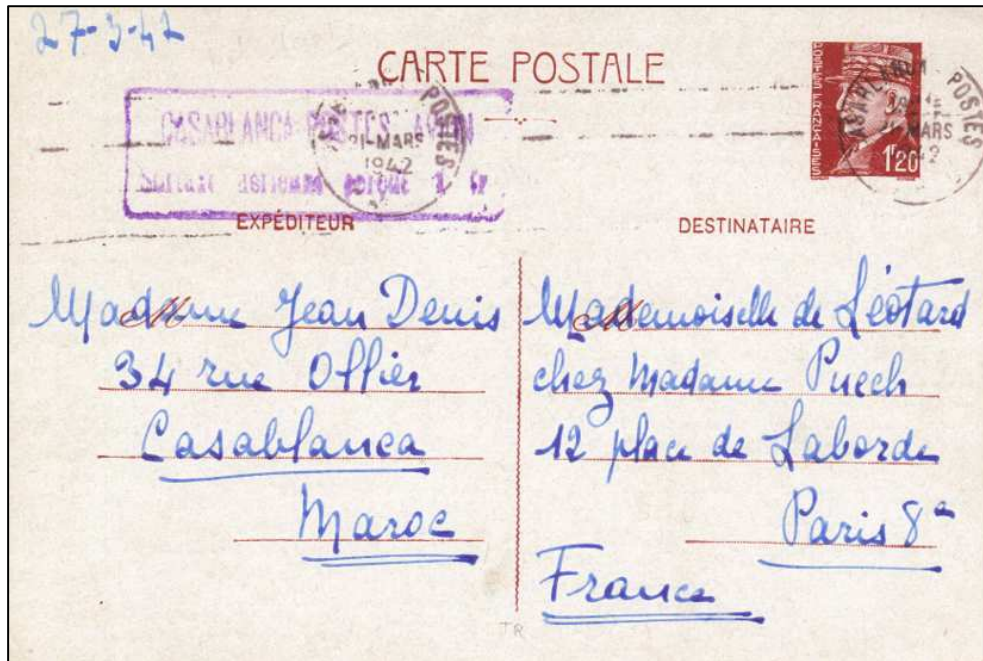 27-3-42
CARTE POSTALE
CASABLANCA POSTES AVION
Surtaxe aérienne perçue 1 fr
CASABLANCA POSTES
21-MARS
1942
POSTES FRANÇAISES
1F20
CASABLANCA POSTES
MARS
EXPÉDITEUR
DESTINATAIRE
Madame Jean Denis
34 rue Ollier
Casablanca
Maroc
Mademoiselle de Léotard
chez Madame Puech
12 place de Laborde
Paris 8e
France
TR